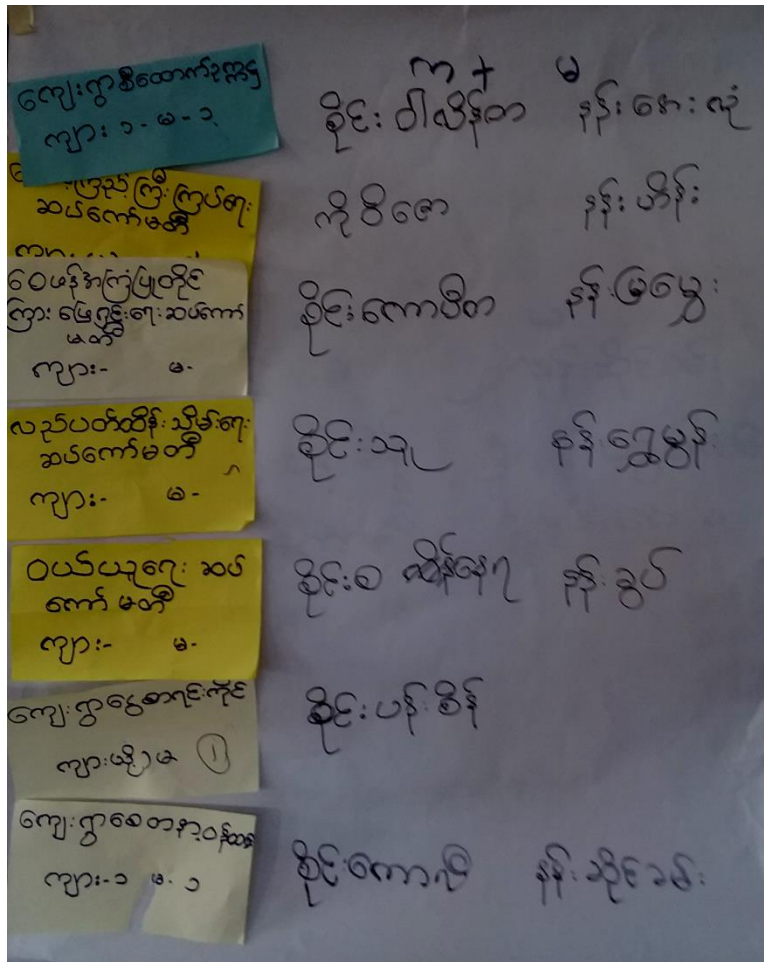 ကျား + မ
ကျေးရွာစီထောက်ဥက္ကဌ
ကျား ၁ - မ - ၁
စိုင်း ဝါလိန်တာ နန်းအေးလုံ
ကြည့်ကြီးကြပ်ရေး
ဆပ်ကော်မတီ
ကိုဝိဇော နန်းဟိန်း
ဝေဖန်အကြံပြုတိုင်
ကြား ဖြေရှင်းရေး ဆပ်ကော်
မတီ
ကျား- မ-
စိုင်းကောဝိတ နန်းမြမွှေး
လည်ပတ်ထိန်းသိမ်းရေး
ဆပ်ကော်မတီ
ကျား- မ-
စိုင်းသူ နန်းရွှေမွန်
ဝယ်ယူရေး ဆပ်
ကော်မတီ
ကျား- မ-
စိုင်းစ နန်းခွပ်
ကျေးရွာငွေစာရင်းကိုင်
ကျား(သို့)မ ①
စိုင်းပန်းစိန်
ကျေးရွာစေတနာ့ဝန်ထမ်း
ကျား-၁ မ-၁
စိုင်း နန်းဆိုင်ခမ်း